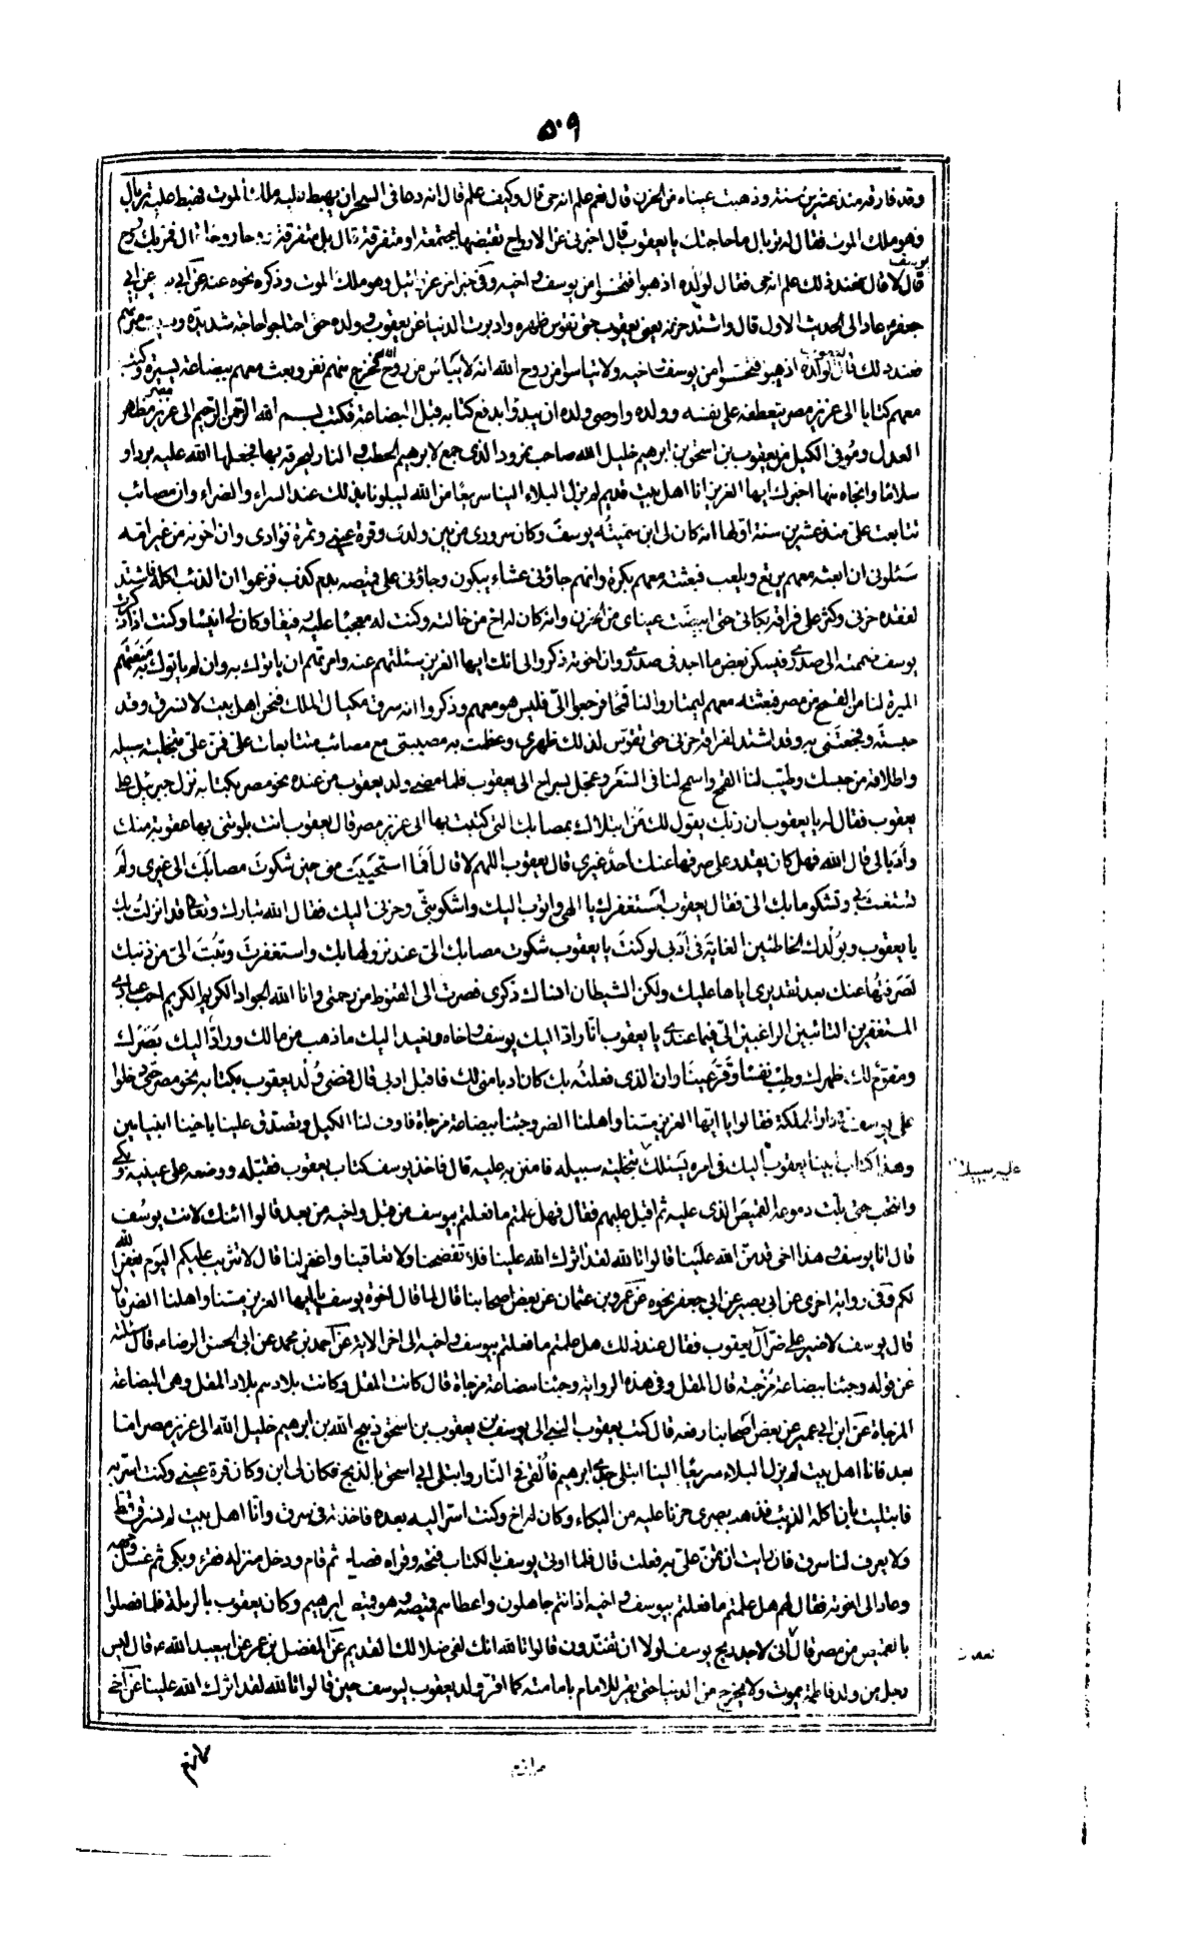 ٥٠٩
وقد فارقه منذ عشرين سنة وذهبت عيناه من الحزن قال نعم علم انه حى قال وكيف علم قال انه دعا فى السحر ان يهبط عليه ملك الموت فهبط عليه تربال
وهو ملك الموت فقال له تربال ما حاجتك يا يعقوب قال اخبرنى عن الارواح تقبضها مجتمعة او متفرقة قال بل متفرقة روحا روحا قال فمر بك روح
يوسف
قال لا قال فعند ذلك علم انه حى فقال لولده اذهبوا فتحسسوا من يوسف واخيه وفى خبر اخر عزرائيل وهو ملك الموت وذكره نحوه عنه عن ابيه عن ابى
جعفر عاد الى الحديث الاول قال واشتد حزنه يعنى يعقوب حتى تقوس ظهره وادبرت الدنيا عن يعقوب وولده حتى احتاجوا حاجة شديدة وفنيت ميرتهم
فعند ذلك قال لولده اذهبوا فتحسسوا من يوسف واخيه ولا تياسوا من روح الله انه لا ييأس من روح الله فخرج منهم نفر وبعث معهم ببضاعة يسيرة وكتب
معهم كتابا الى عزيز مصر يتعطفه على نفسه وولده واوصى ولده ان يبدؤا بدفع كتابه قبل البضاعة فكتب بسم الله الرحمن الرحيم الى عزيز مصر مظهر
العدل وموفى الكيل من يعقوب بن اسحق بن ابرهيم خليل الله صاحب نمرود الذى جمع لابرهيم الحطب والنار ليحرقه بها فجعلها الله عليه بردا و
سلاما وانجاه منها اخبرك ايها العزيز انا اهل بيت قديم لم يزل البلاء الينا سريعا من الله ليبلونا بذلك عند السراء والضراء وان مصائب
تتابعت على منذ عشرين سنة اولها انه كان لى ابن سميته يوسف وكان سرورى من بين ولدى وقرة عينى وثمرة فؤادى وان اخوته من غير امه
سئلونى ان ابعثه معهم يرتع ويلعب فبعثته معهم بكرة وانهم جاؤنى عشاء يبكون وجاؤنى على قميصه بدم كذب فزعموا ان الذئب اكله فاشتد
لفقده حزنى وكثر على فراقه بكائى حتى ابيضت عيناى من الحزن وانه كان له اخ من خالته وكنت له معجبا وعليه رفيقا وكان لى انيسا وكنت اذا ذكرت
يوسف ضممته الى صدرى فيسكن بعض ما اجد فى صدرى وان اخوته ذكروا لى انك ايها العزيز سئلتهم عنه وامرتهم ان ياتوك به وان لم ياتوك به منعتهم
الميرة لنا من القمح من مصر فبعثته معهم ليمتاروا لنا قمحا فرجعوا الى فليس هو معهم وذكروا انه سرق مكيال الملك ونحن اهل بيت لا نسرق وقد
حبسته وفجعتنى به وقد اشتد لفراقه حزنى حتى تقوس لذلك ظهرى وعظمت به مصيبتى مع مصائب متتابعات على فمن على بتخلية سبيله
واطلاقه من حبسك وطيب لنا القمح واسمح لنا فى السعر وعجل بسراح ال يعقوب فلما مضى ولد يعقوب من عنده نحو مصر بكتابه نزل جبرئيل على
يعقوب فقال له يا يعقوب ان ربك يقول لك من ابتلاك بمصائبك التى كتبت بها الى عزيز مصر قال يعقوب انت بلوتنى بها عقوبة منك
وادبا لى قال الله فهل كان يقدر على صرفها عنك احد غيرى قال يعقوب اللهم لا قال أفما استحييت منى حين شكوت مصائبك الى غيرى ولم
تستغث بى وتشكو ما بك الى فقال يعقوب استغفرك يا الهى واتوب اليك واشكو بثى وحزنى اليك فقال الله تبارك وتعالى قد انزلت بك
يا يعقوب وبولدك الخاطئين الغاية فى ادبى ولو كنت يا يعقوب شكوت مصائبك الى عند نزولها بك واستغفرت وتبت الى من ذنبك
لصرفتها عنك بعد تقديرى اياها عليك ولكن الشيطان انساك ذكرى فصرت الى القنوط من رحمتى وانا الله الجواد الكريم احب عبادى
المستغفرين التائبين الراغبين الى فيما عندى يا يعقوب انا راد اليك يوسف واخاه ومعيد اليك ما ذهب من مالك وراد اليك بصرك
ومقوم لك ظهرك وطب نفسا وقر عينا وان الذى فعلته بك كان ادبا منى لك فاقبل ادبى قال فمضى ولد يعقوب بكتابه نحو مصر حتى دخلوا
على يوسف فى دار المملكة فقالوا يا ايها العزيز مسنا واهلنا الضر وجئنا ببضاعة مزجاة فاوف لنا الكيل وتصدق علينا باخينا ابن يامين
وهذا كتاب ابينا يعقوب اليك فى امره يسئلك تخلية سبيله فامنن به عليه قال فاخذ يوسف كتاب يعقوب فقبله ووضعه على عينيه وبكى
وانتحب حتى بلت دموعه القميص الذى عليه ثم اقبل عليهم فقال هل علمتم ما فعلتم بيوسف من قبل واخيه من بعد قالوا ائنك لانت يوسف
قال انا يوسف وهذا اخى قد من الله علينا قالوا تالله لقد اثرك الله علينا فلا تفضحنا ولا تعاقبنا واغفر لنا قال لا تثريب عليكم اليوم يغفر الله
لكم وفى رواية اخرى عن ابى بصير عن ابى جعفر نحوه عن عمرو بن عثمان عن بعض اصحابنا قال لما قال اخوة يوسف يا ايها العزيز مسنا واهلنا الضر قال
قال يوسف لا صبر على ضر آل يعقوب فقال عند ذلك هل علمتم ما فعلتم بيوسف واخيه الى اخر الاية عن احمد بن محمد عن ابى الحسن الرضا ع قال سئلته
عن قوله وجئنا ببضاعة مزجية قال المقل وفى هذه الرواية وجئنا ببضاعة مزجاة قال كانت المقل وكانت بلادهم بلاد المقل وهى البضاعة
المزجاة عن ابن ابى عمير عن بعض اصحابنا رفعه قال كتب يعقوب النبى الى يوسف من يعقوب بن اسحق ذبيح الله بن ابرهيم خليل الله الى عزيز مصر اما
بعد فانا اهل بيت لم يزل البلاء سريعا الينا ابتلى جدى ابرهيم فالقى فى النار وابتلى ابى اسحق بالذبح فكان لى ابن وكان قرة عينى وكنت اسر به
فابتليت بان اكله الذئب فذهب بصرى حزنا عليه من البكاء وكان له اخ وكنت اسر اليه بعده فاخذته فى سرق وانا اهل بيت لم نسرق قط
ولا يعرف لنا سرق فان رايت ان تمن على به فعلت قال فلما اوتى يوسف بالكتاب فتحه وقراه فصاح ثم قام ودخل منزله فقرء وبكى ثم غسل وجهه
وعاد الى اخوته فقال لهم هل علمتم ما فعلتم بيوسف واخيه اذ انتم جاهلون واعطاهم قميصه وهو قميص ابرهيم وكان يعقوب بالرملة فلما فصلوا
بالقميص من مصر قال انى لاجد ريح يوسف لولا ان تفندون قالوا تالله انك لفى ضلالك القديم عن المفضل بن عمر عن ابيعبد الله ع قال ليس
رجل من ولد فاطمة يموت ولا يخرج من الدنيا حتى يقر للامام بامامته كما اقر ولد يعقوب ليوسف حين قالوا تالله لقد اثرك الله علينا عن اخى